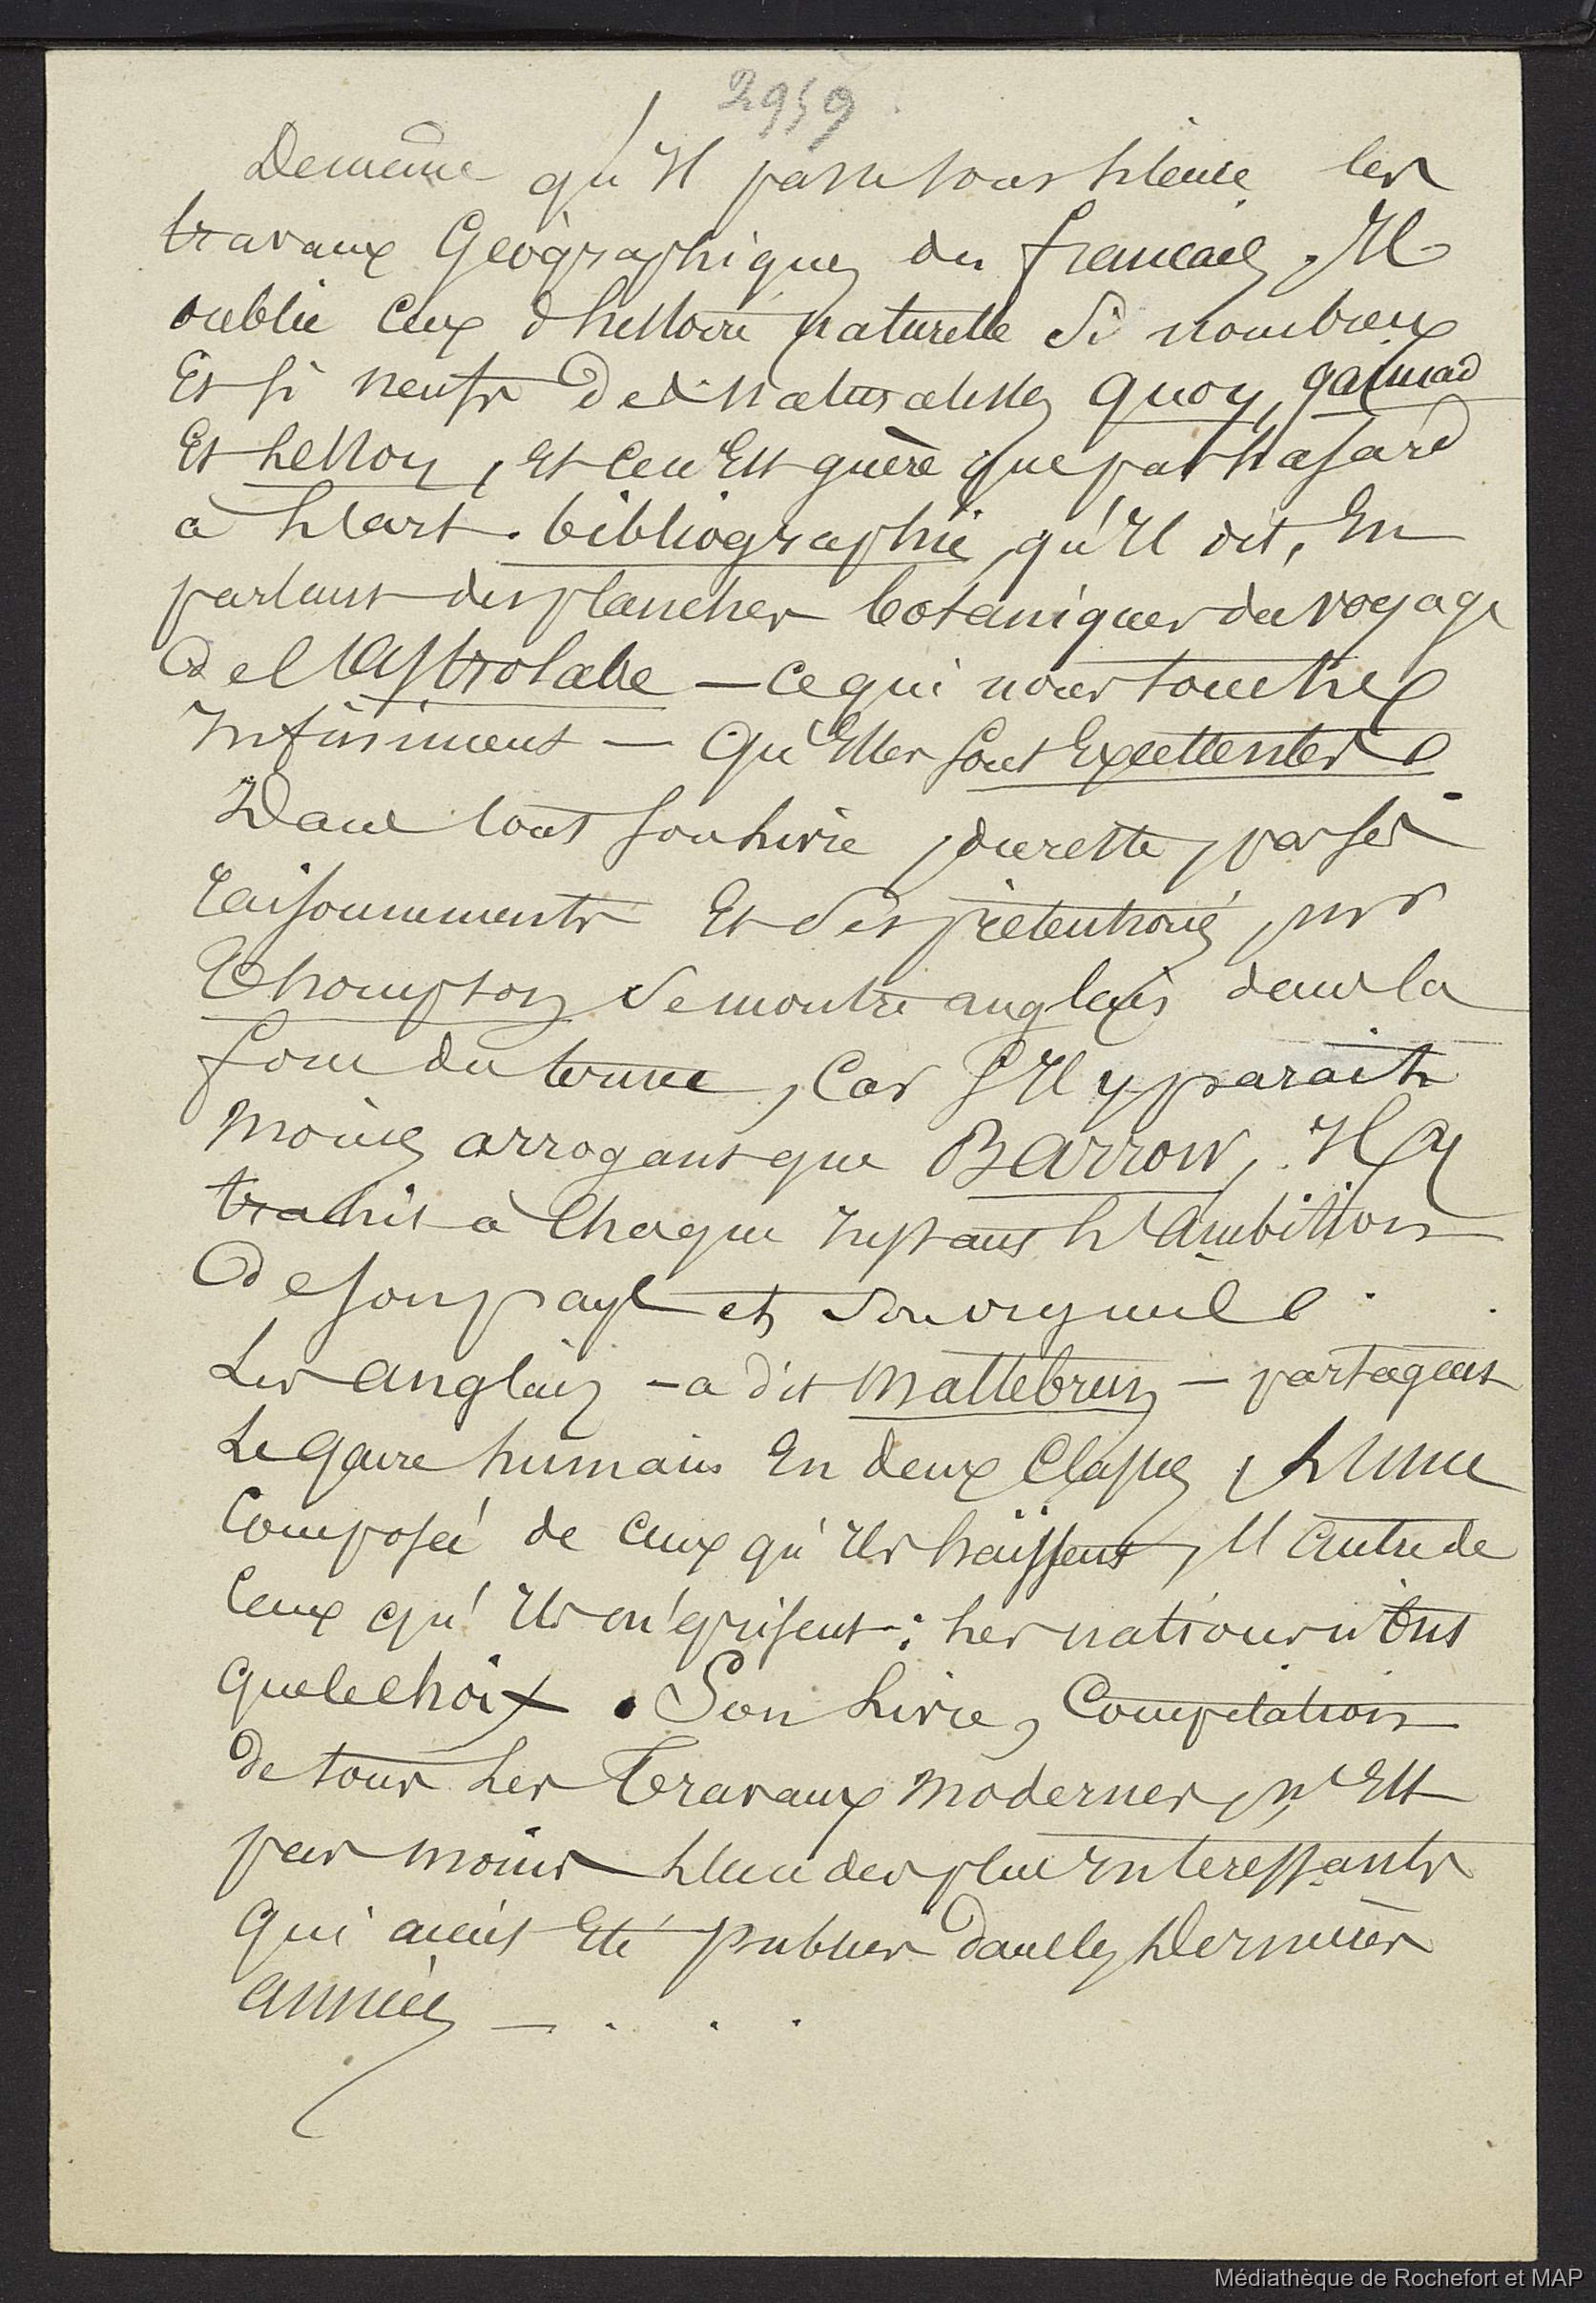 2959
De même qu'Il passe sous silence les
travaux Géographiques des français, Il
oublie Ceux d'histoire naturelle Si nombreux
Et si neufs Des naturalistes Quoy, gaimard
Et Lesson, Et ce n'Est guère que par hasard
à L'art. bibliographie, qu'Il dit, En
parlant des planches botaniques du voyage
de l'Astrolabe — Ce qui nous touche
Infiniment — Qu'Elles sont Excellentes.
Dans tout son Livre, du reste, par ses
raisonnements Et Ses prétentions, mr
Thompson Se montre anglais dans la
force du terme, Car S'Il y parait
moins arrogant que Barrow, Il y
trahit à Chaque Instant L'Ambition
de son pays et Son orgueil.
Les anglais — a dit Maltebrun — partagent
Le genre humain En deux Classes, L'Une
Composée de ceux qu'Ils haïssent, l'autre de
Ceux qu'Ils méprisent: Les nations n'Ont
que le choix. Son Livre, Compilation
de tous Les Travaux modernes, n'Est
pas moins L'un des plus Interessants
Qui aient Eté publiés dans les Dernières
années — . . .
Médiathèque de Rochefort et MAP